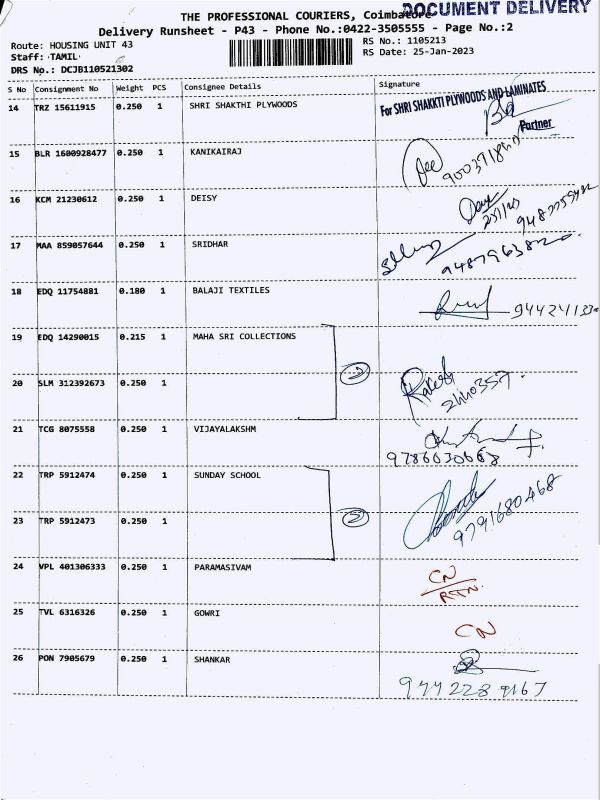 DOCUMENT DELIVERY
THE PROFESSIONAL COURIERS, Coimbatore
Delivery Runsheet - P43 - Phone No.:0422-3505555 - Page No.:2
Route: HOUSING UNIT 43
RS No.: 1105213
Staff: TAMIL
RS Date: 25-Jan-2023
DRS No.: DCJB110521302
S No Consignment No Weight PCS Consignee Details Signature
14 TRZ 15611915 0.250 1 SHRI SHAKTHI PLYWOODS
For SHRI SHAKKTI PLYWOODS AND LAMINATES
Partner
15 BLR 1600928477 0.250 1 KANIKAIRAJ
16 KCM 21230612 0.250 1 DEISY
17 MAA 859057644 0.250 1 SRIDHAR
9487963820
18 EDQ 11754881 0.180 1 BALAJI TEXTILES
19 EDQ 14290015 0.215 1 MAHA SRI COLLECTIONS
2
20 SLM 312392673 0.250 1
21 TCG 8075558 0.250 1 VIJAYALAKSHM
9786030668
22 TRP 5912474 0.250 1 SUNDAY SCHOOL
2
9791680468
23 TRP 5912473 0.250 1
24 VPL 401306333 0.250 1 PARAMASIVAM CN
RTN
25 TVL 6316326 0.250 1 GOWRI CN
26 PON 7905679 0.250 1 SHANKAR
9442289167